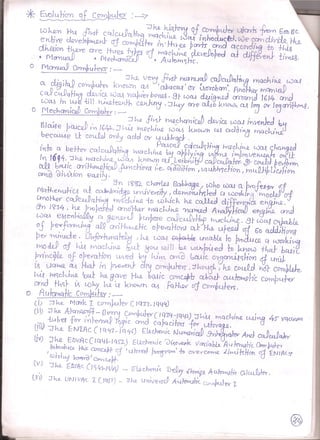 * Evolution of Computer :—>
The history of computer starts from Em BC
when the first calculating machine was introduced. We can divide the
entire development of computer in three parts and according to this
division there are three types of machine developed at different times.
• Manual • Mechanical • Automatic.
○ Manual Computer :—
The very first manual calculating machine was
a digital computer known as 'abacus' or 'soroban'. Another manual
calculating device was napier bones. It was designed around 1614 and
was in use till nineteenth century. They are also known as log or logarithms.
○ Mechanical Computer :—
The first mechanical device was invented by
Blaise pascal in 1642. This machine was known as adding machine
because it could only add or subtract.
Pascal calculating machine was changed
into a better calculating machine by applying some improvements on it
In 1694. The machine was known as Leibnitz calculator. It could perform
all basic arithmetical functions i.e. addition, subtraction, multiplication
and division easily.
In 1822 charles Babbage, who was a professor of
Mathematics at cambridge university, demonstrated a working model of
another calculating machine to which he called difference engine.
In 1834, he projected another machine named Analytical engine and
was essentially a general purpose calculating machine. It was capable
of performing all arithmetic operations at the speed of 60 additions
per minute. Unfortunately, he was unable to produce a working
model of his machine but you will be surprised to know that basic
principle of operation used by him and basic organisation of unit
is same as that in present day computer, though, he could not complete
his machine but he gave the basic concept about automatic computer
and that is why he is known as Father of Computers.
○ Automatic Computer :—
(i) The Mark I Computer (1937-1944)
(ii) The Atanasoff-Berry Computer (1939-1942) This machine using 45 vacuum
tubes for internal logic and capacitor for storage.
(iii) The ENIAC (1943-1946) Electronic Numerical Integrator And Calculator
(iv) The EDVAC (1946-1952) Electronic Discrete Variable Automatic Computer
Introduces the concept of 'stored program' to overcome limitation of ENIAC's
'wiring board' concept.
(v) The EDSAC — Electronic Delay Storage Automatic Calculator.
(vi) The UNIVAC I (1951) - The Universal Automatic Computer I